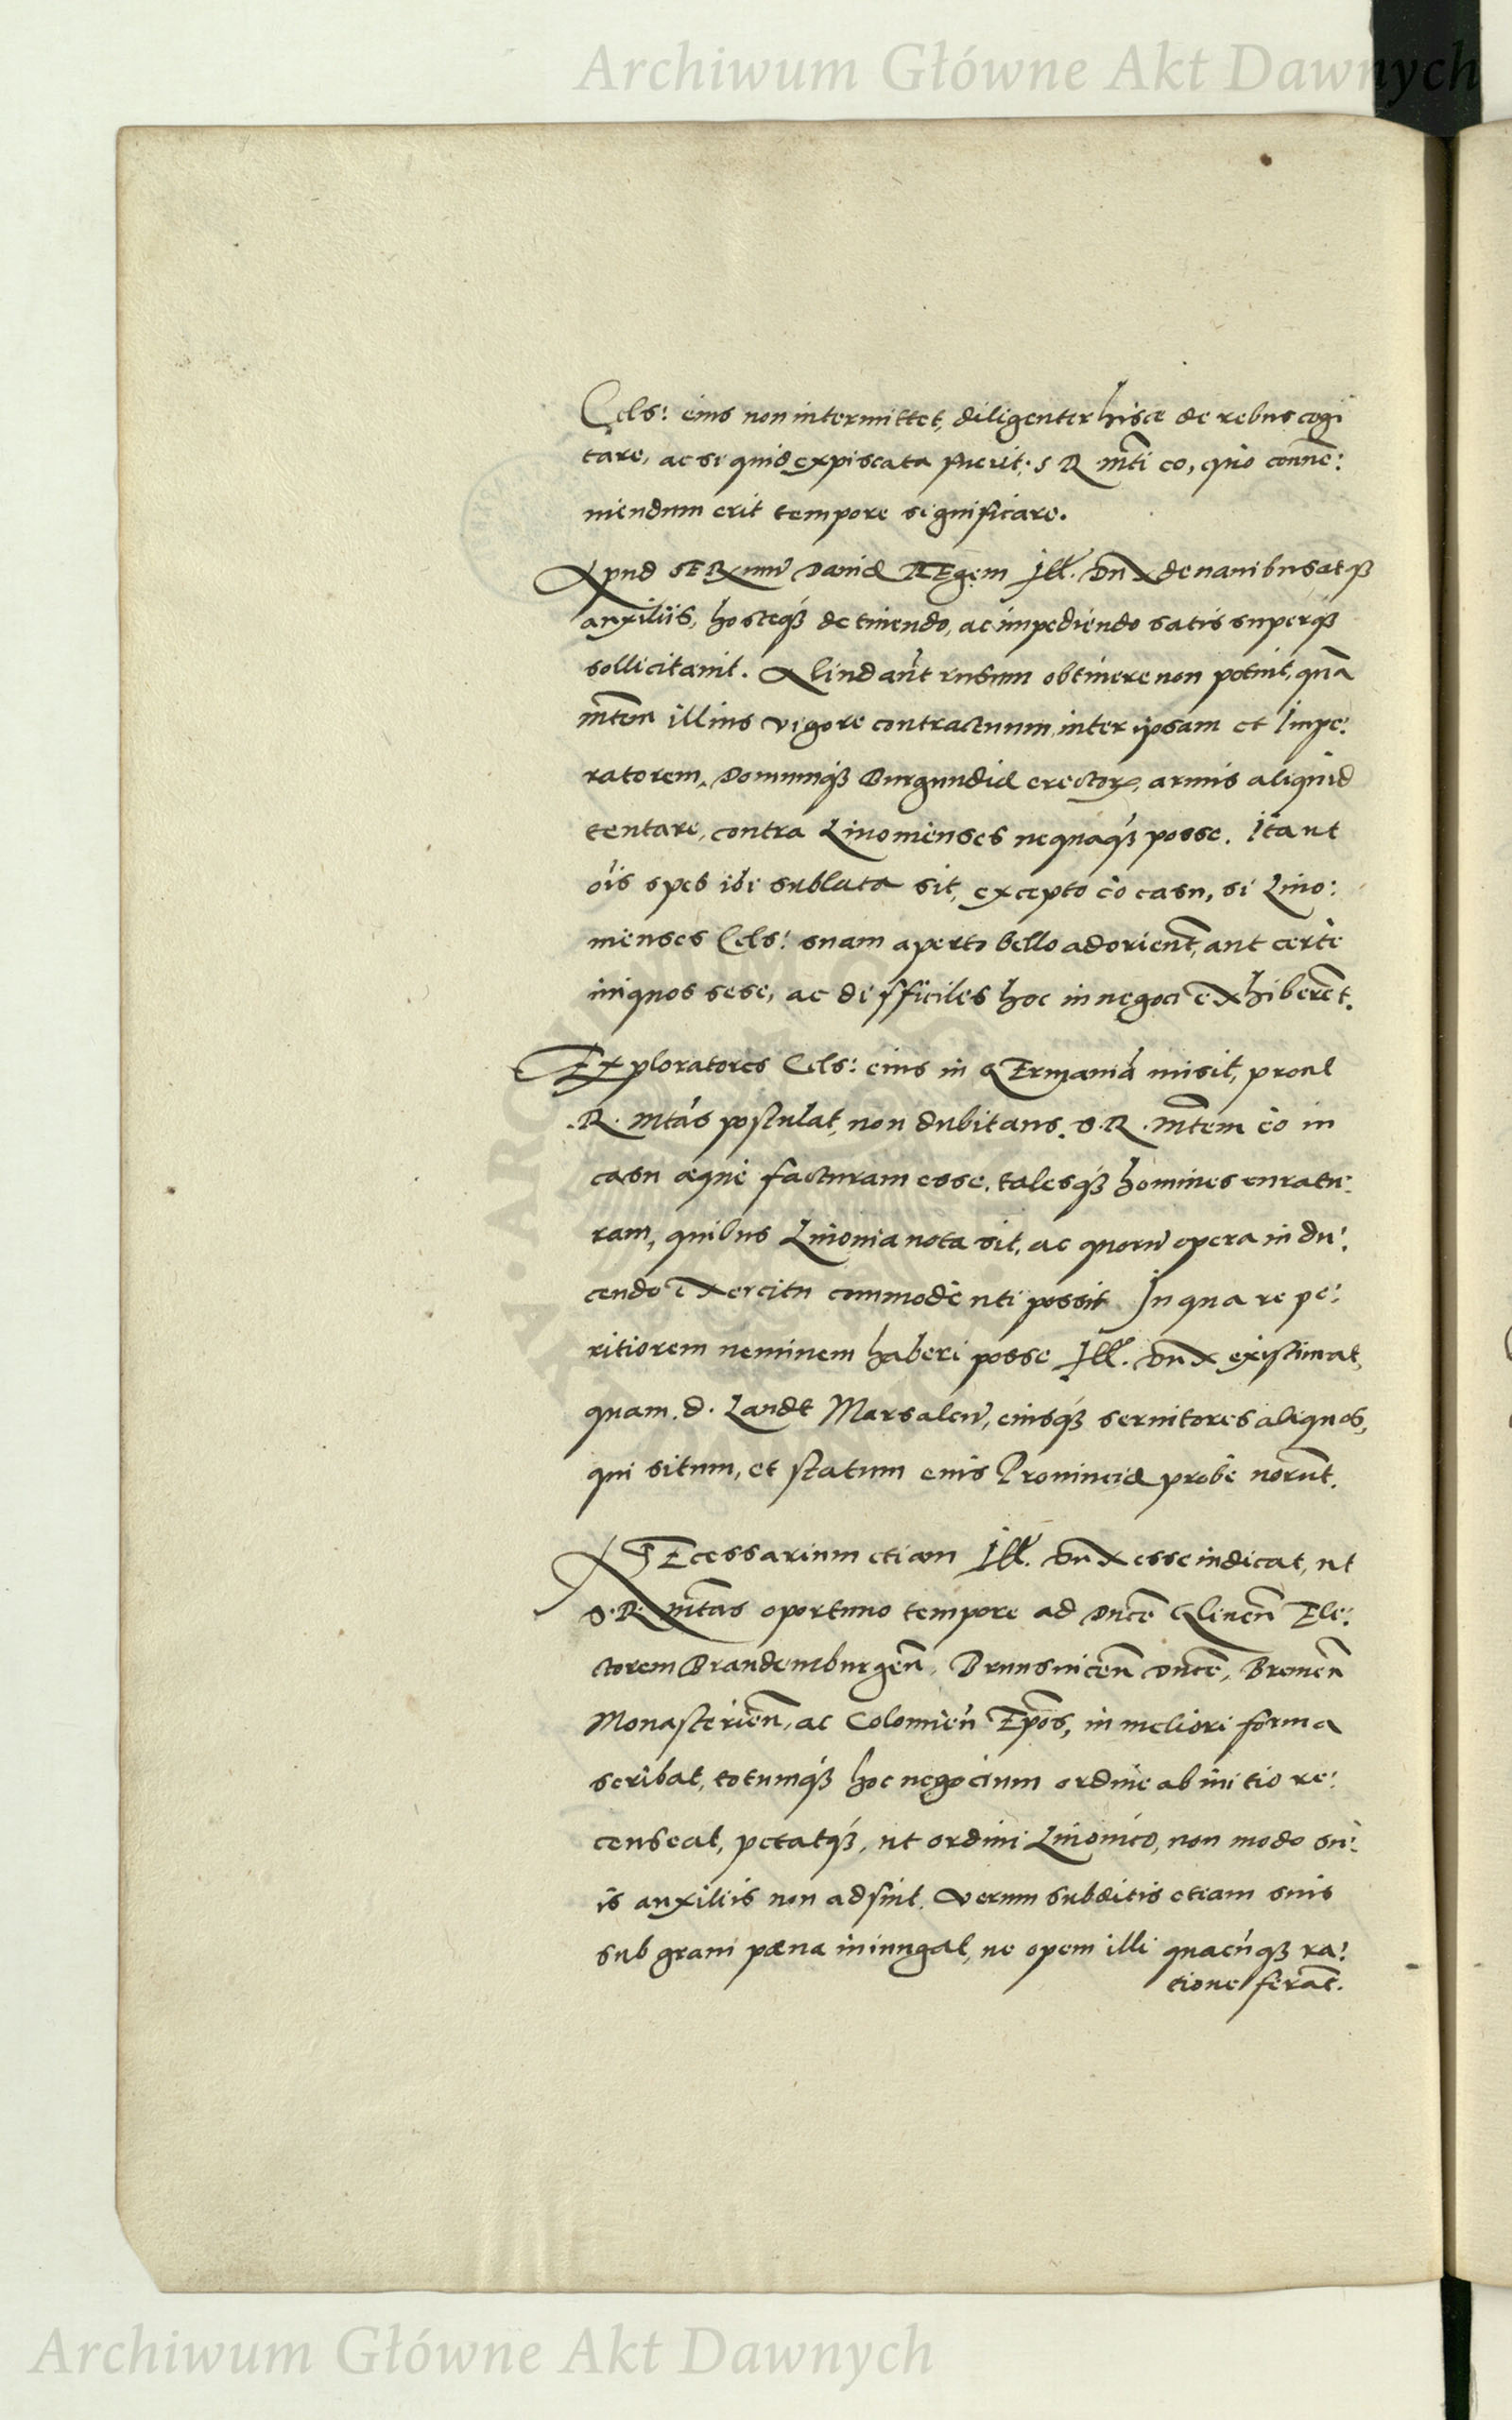 Archiwum Główne Akt Dawnych
Cels: eius non intermittet, diligenter hisce de rebus cogi
tare, ac si quid expiscata fuerit, S R Mti eo, quo conue:
niendum erit tempore significare.
Apud SERmũ Daniæ REgem Ill. Dux de nauibus atqȝ
auxiliis, hosteqȝ detinendo, ac impediendo satis superqȝ
sollicitauit. Aliud aũt rursum obtinere non potuit, quã
Mtem illius vigore contractuum, inter ipsam et Impe:
ratorem, Domumqȝ Burgundiæ erectorꝝ, armis aliquid
tentare, contra Liuonienses nequaqȝ posse. Ita ut
õis spes ibi sublata sit, excepto eo casu, si Liuo:
nienses Cels: suam aperto bello adorient, aut certe
iniquos sese, ac difficiles hoc in negoci exhiberẽt.
Exploratores Cels: eius in GErmaniã misit, prout
.R. Mtas postulat, non dubitans. S. R. Mtem eo in
casu æque facturam esse, talesqȝ homines curatu:
ram, quibus Liuonia nota sit, ac quorũ opera in du:
cendo exercitu commode uti possit. In qua re pe:
ritiorem neminem haberi posse Ill. Dux existimat,
quam. d. Landt Marsalcũ, eiusqȝ seruitores aliquos,
qui situm, et statum eius Prouinciæ probe norũt.
NEcessarium etiam Ill. Dux esse iudicat, ut
S. R. Mtas oportuno tempore ad Ducẽ Cliuẽn Ele:
ctorem Brandemburgẽn, Brunsuicẽn Ducẽ, Bremẽn
Monasteriẽn, ac Coloniẽn Epos, in meliori forma
scribat, totumqȝ hoc negocium ordine ab initio re:
censeat, petatqȝ, ut ordini Liuonico, non modo su:
is auxiliis non adsint. Verum subditis etiam suis
sub graui pæna iniungat, ne opem illi quacũqȝ ra:
tione ferãt.
Archiwum Główne Akt Dawnych